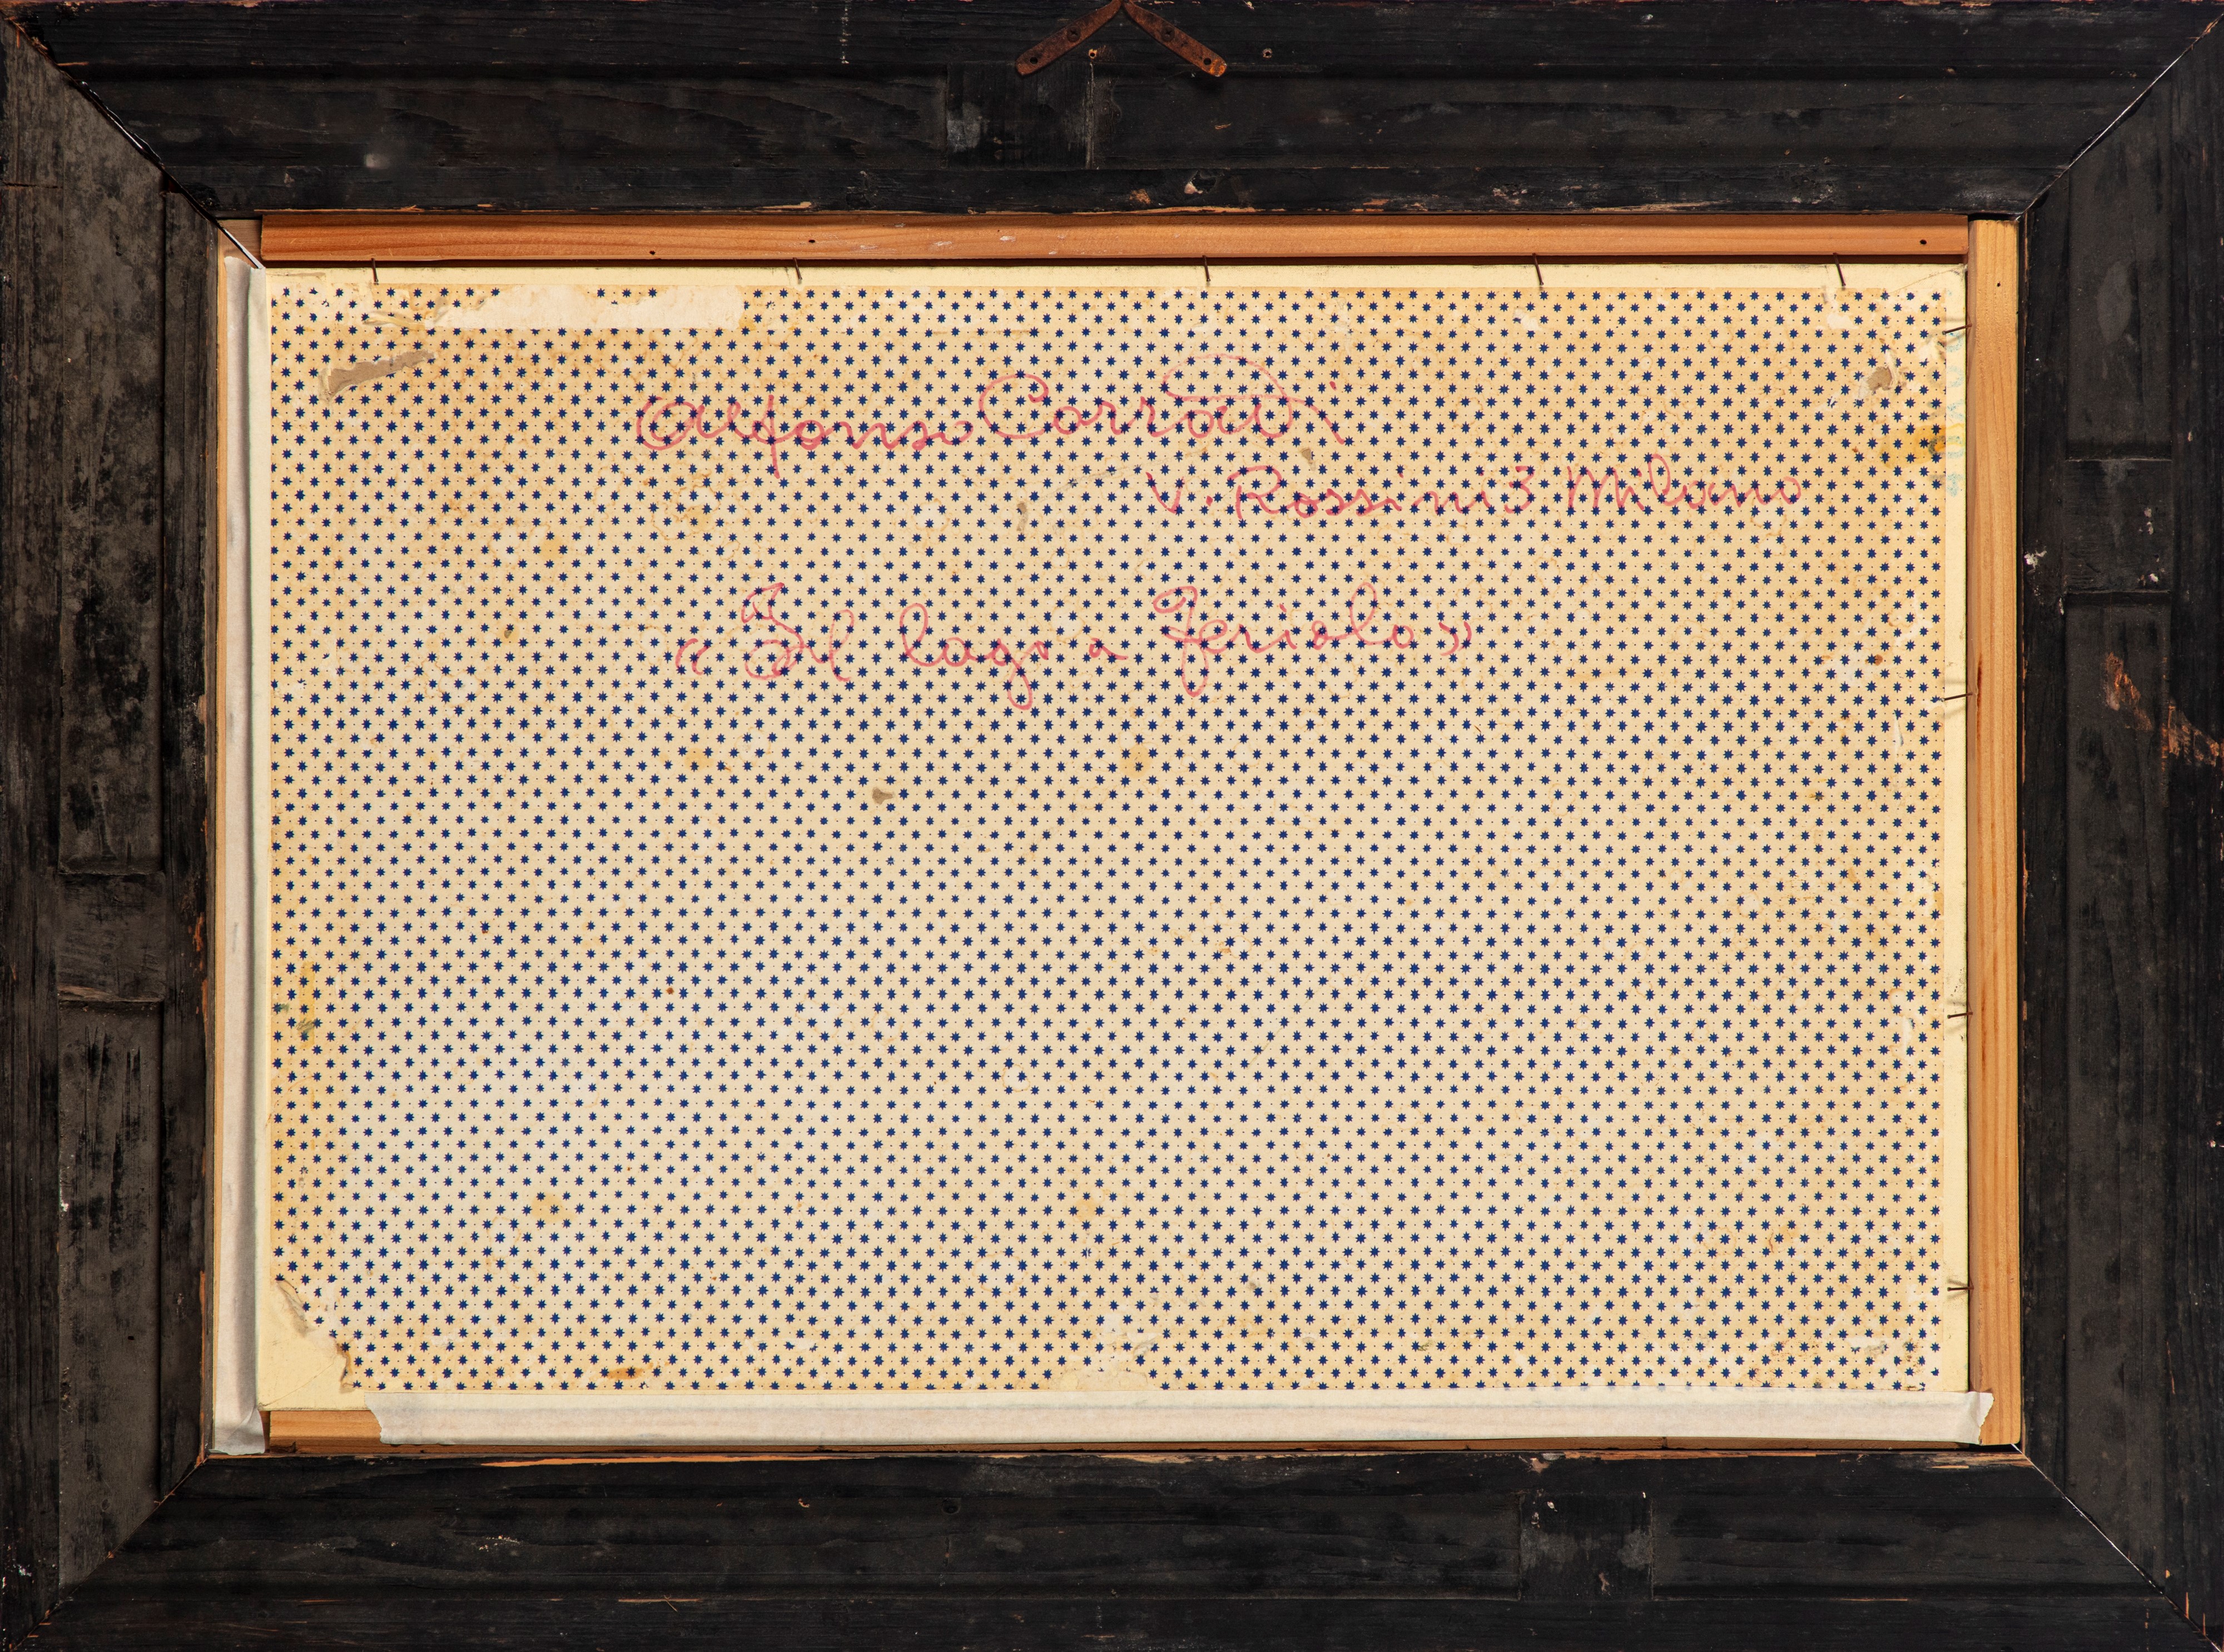 Alfonso Corradi
V. Rossini 3 Milano
« Il lago a Feriolo »